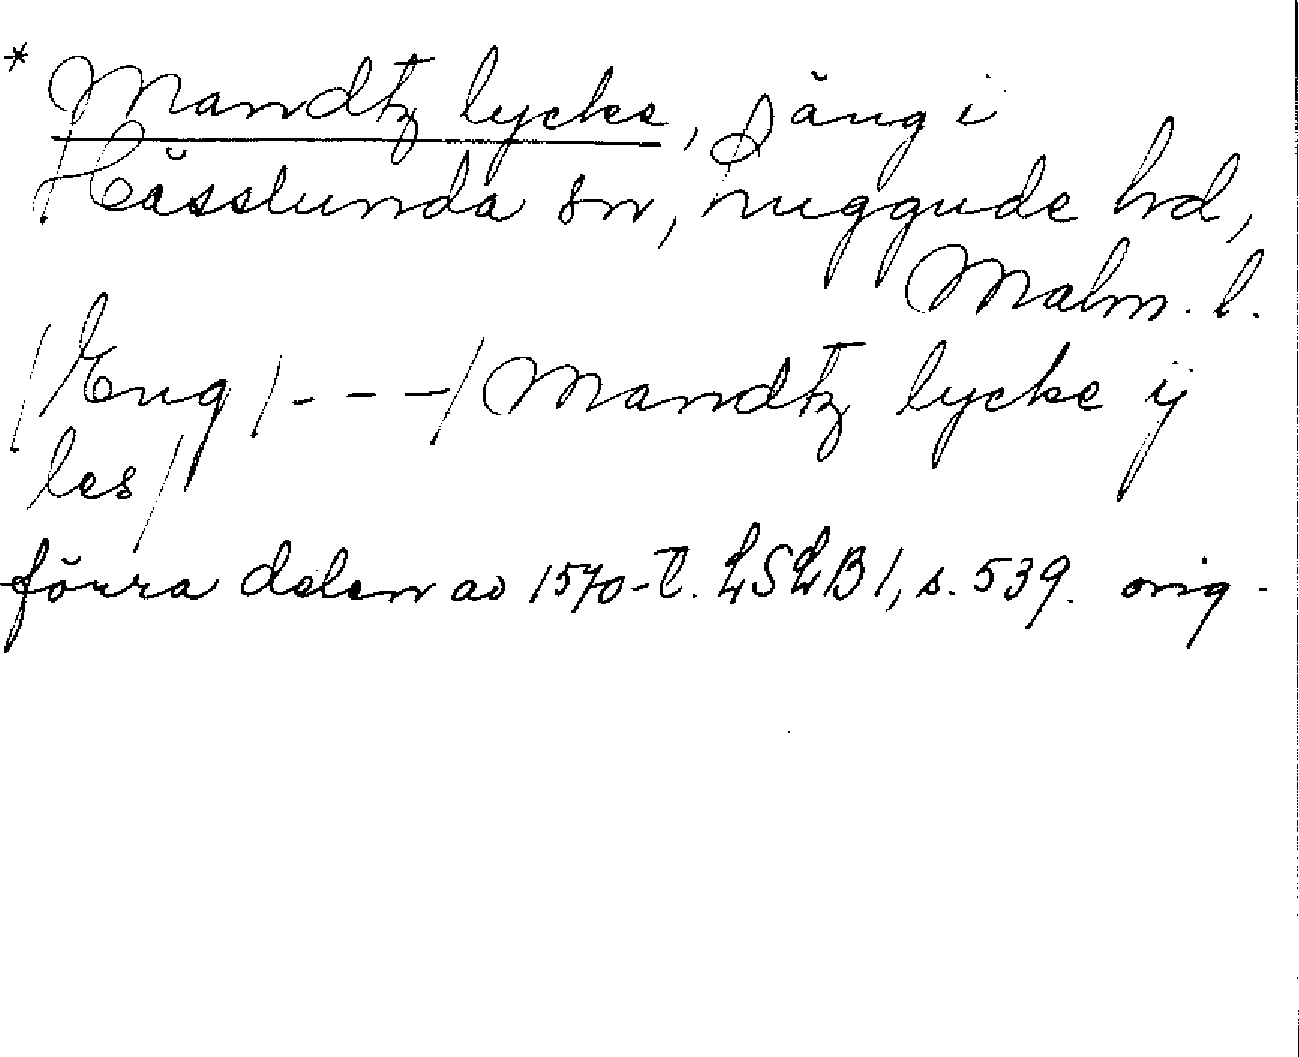 * Mandtz lycke, äng i
Hässlunda sn, Luggude hd,
Malm. l.
/Eng/ - - -/ Mandtz lycke ij
les/
förra delen av 1570-t. LSLB 1, s. 539. orig.